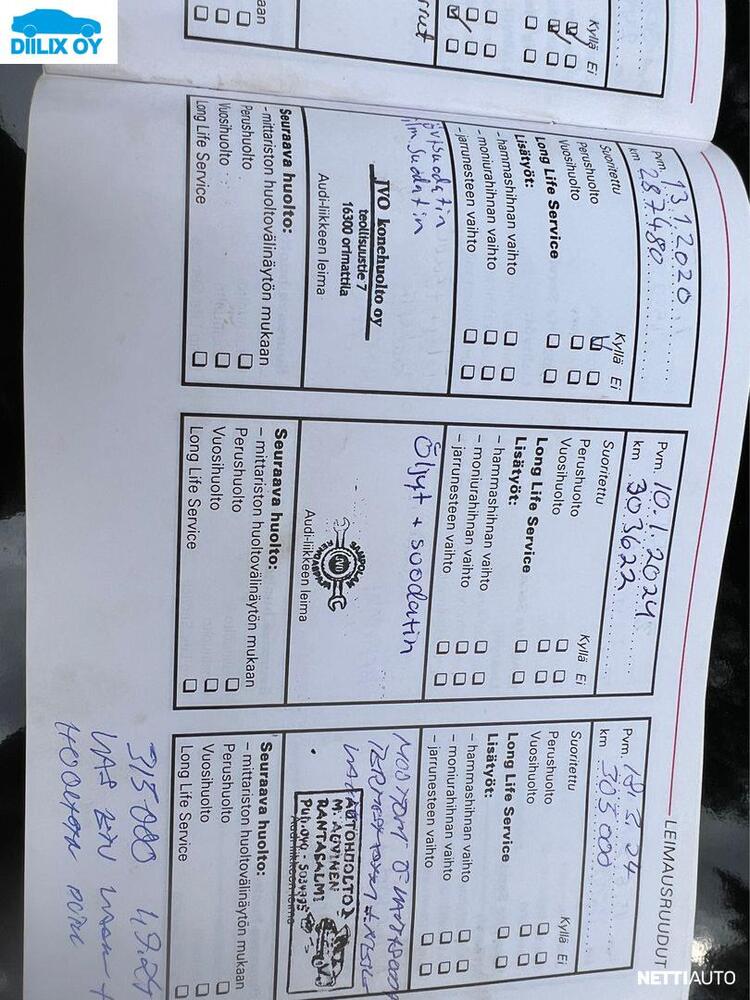 DIILIX OY
aan
rrut
Kyllä Ei
LEIMAUSRUUDUT
Pvm. 13.1.2020
km 287480
Suoritettu
Kyllä Ei
Perushuolto
Vuosihuolto
Long Life Service
Lisätyöt:
- hammashihnan vaihto
- moniurahihnan vaihto
- jarrunesteen vaihto
JVO konehuolto oy
teollisuustie 7
16300 orimattila
Audi-liikkeen leima
Seuraava huolto:
- mittariston huoltovälinäytön mukaan
Perushuolto
Vuosihuolto
Long Life Service
Pvm. 10.1.2024
km 303622
Suoritettu
Kyllä Ei
Perushuolto
Vuosihuolto
Long Life Service
Lisätyöt:
- hammashihnan vaihto
- moniurahihnan vaihto
- jarrunesteen vaihto
Öljyt + suodatin
Audi-liikkeen leima
Seuraava huolto:
- mittariston huoltovälinäytön mukaan
Perushuolto
Vuosihuolto
Long Life Service
Pvm. 24
km 305000
Suoritettu
Kyllä Ei
Perushuolto
Vuosihuolto
Long Life Service
Lisätyöt:
- hammashihnan vaihto
- moniurahihnan vaihto
- jarrunesteen vaihto
AUTOHUOLTO
RANTASALMI
Seuraava huolto:
- mittariston huoltovälinäytön mukaan
Perushuolto
Vuosihuolto
Long Life Service
315000
NETTIAUTO